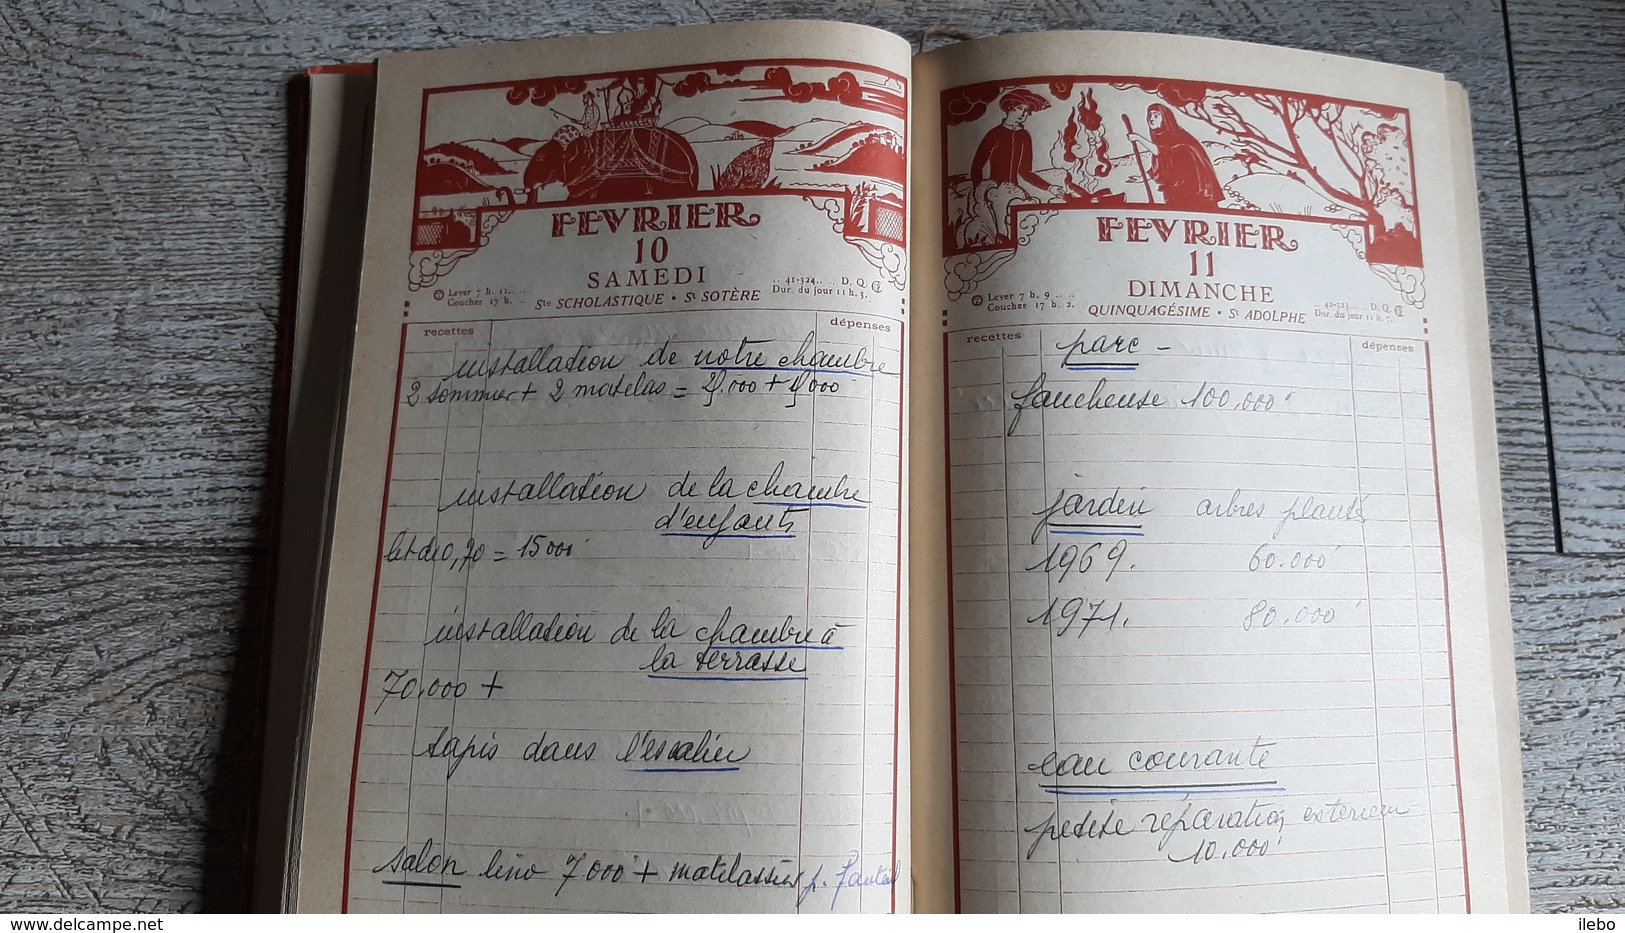 FEVRIER
10
SAMEDI
Lever 7 h. 11.. ..
Coucher 17 h. ..
Ste SCHOLASTIQUE • St SOTÈRE
.. 41-324.. .. D. Q.
Dur. du jour 11 h. 3.
recettes
dépenses
installation de notre chambre
2 sommier + 2 matelas =
installation de la chambre
d'enfants
lit de 0,70 = 15000
installation de la chambre à
la terrasse
70.000 +
tapis dans l'escalier
salon lino 7000 + matelassiers p. fauteuil
FEVRIER
11
DIMANCHE
Lever 7 h. 9 .. ..
Coucher 17 h. 2.
QUINQUAGÉSIME • St ADOLPHE
.. 42-323.. .. D. Q.
Dur. du jour 11 h. 7.
recettes
dépenses
parc -
faucheuse 100.000
jardin arbres plantés
1969. 60.000
1971. 80.000
eau courante
petite réparation extérieur
10.000
www.delcampe.net
ilebo